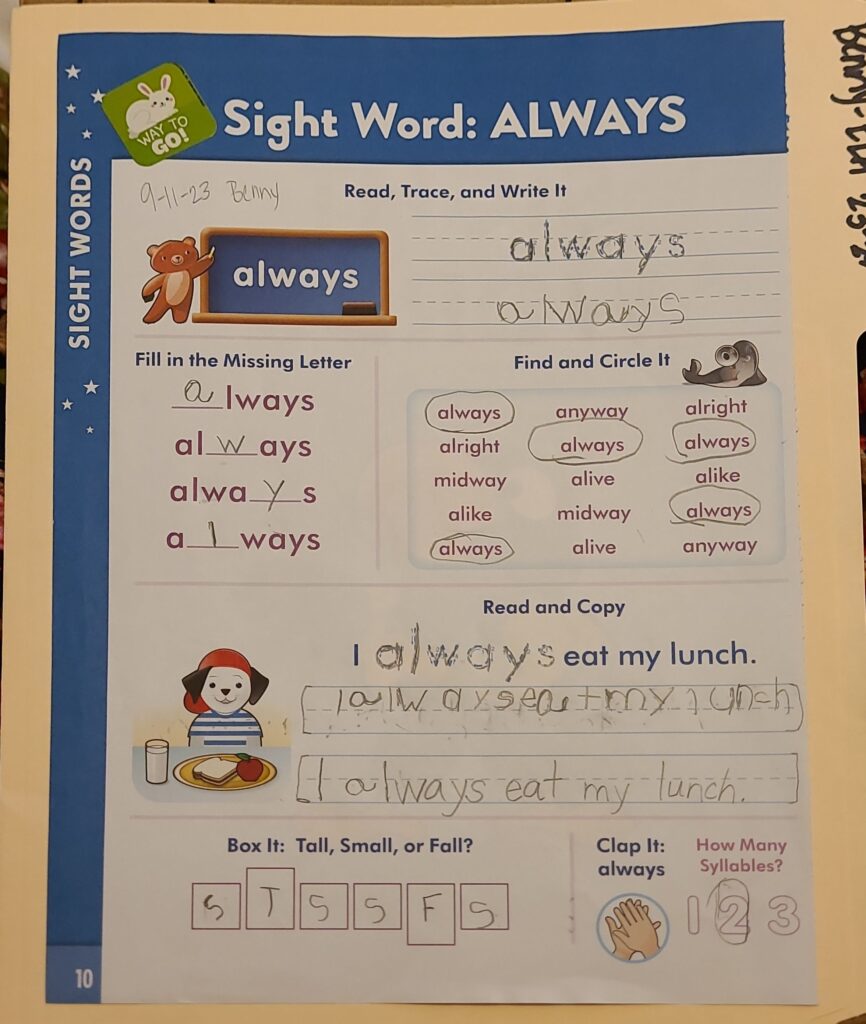 WAY TO
GO!
Sight Word: ALWAYS
SIGHT WORDS
9-11-23 Benny
Read, Trace, and Write It
always
always
always
Fill in the Missing Letter
always
always
always
always
Find and Circle It
always anyway alright
alright always always
midway alive alike
alike midway always
always alive anyway
Read and Copy
I always eat my lunch.
I always eat my lunch
I always eat my lunch.
Box It: Tall, Small, or Fall?
S T S S F S
Clap It:
always
How Many
Syllables?
1 2 3
10
Benny